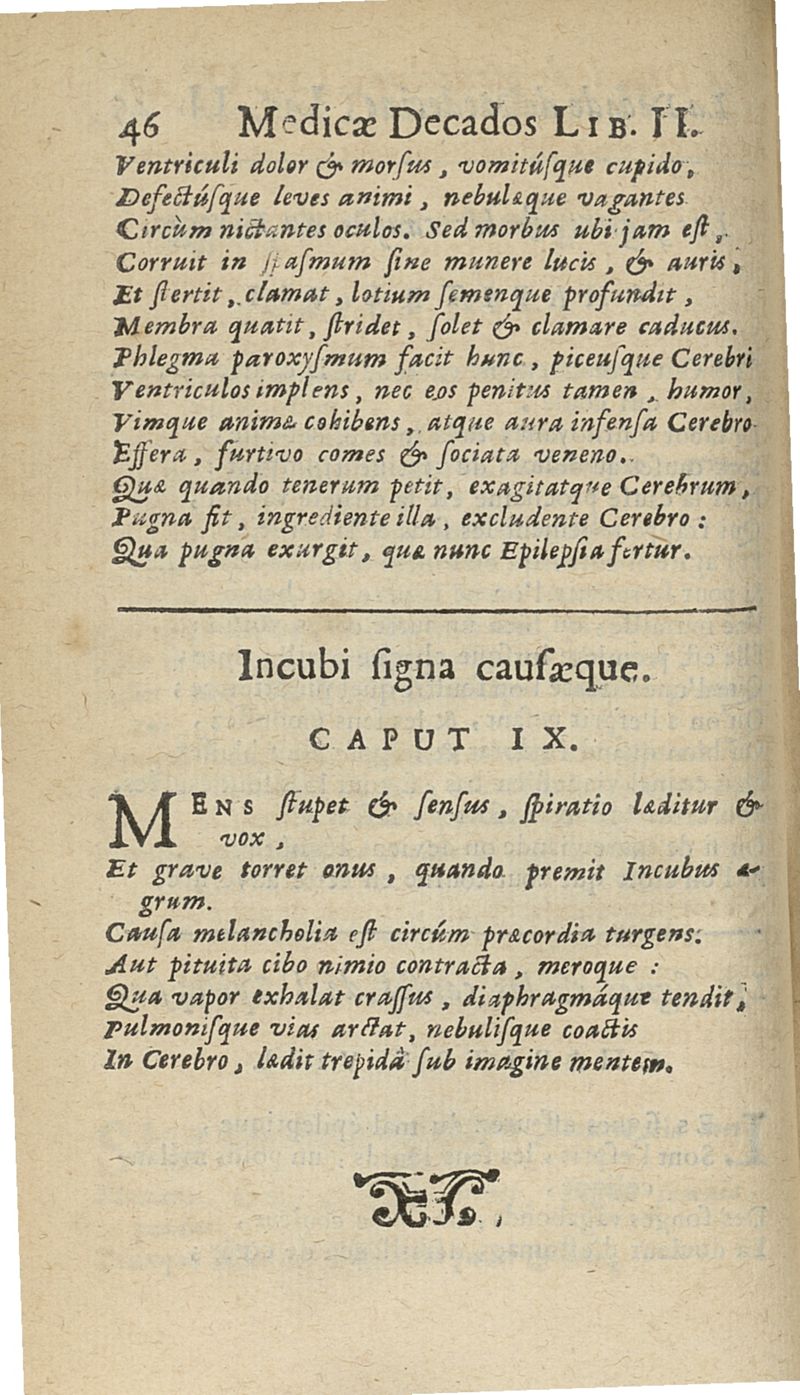 46 Medicæ Decados LIB. II.
Ventriculi dolor & morſus, vomitúſque cupido,
Defectúſque leves animi, nebulæque vagantes
Circùm nictantes oculos. Sed morbus ubi jam eſt,
Corruit in ſpaſmum ſine munere lucis, & auris,
Et ſtertit, clamat, lotium ſemenque profundit,
Membra quatit, ſtridet, ſolet & clamare caducus.
Phlegma paroxyſmum facit hunc, piceuſque Cerebri
Ventriculos implens, nec eos penitus tamen, humor,
Vimque animæ cohibens, atque aura infenſa Cerebro
Effera, furtivo comes & ſociata veneno.
Quæ quando tenerum petit, exagitatque Cerebrum,
Pugna fit, ingrediente illa, excludente Cerebro:
Qua pugna exurgit, quæ nunc Epilepſia fertur.
Incubi ſigna cauſæque.
CAPUT IX.
MENS ſtupet & ſenſus, ſpiratio læditur &
vox,
Et grave torret onus, quando premit Incubus æ-
grum.
Cauſa melancholia eſt circúm præcordia turgens:
Aut pituita cibo nimio contracta, meroque:
Qua vapor exhalat craſſus, diaphragmáque tendit,
Pulmoniſque vias arctat, nebuliſque coactis
In Cerebro, lædit trepidâ ſub imagine mentem.